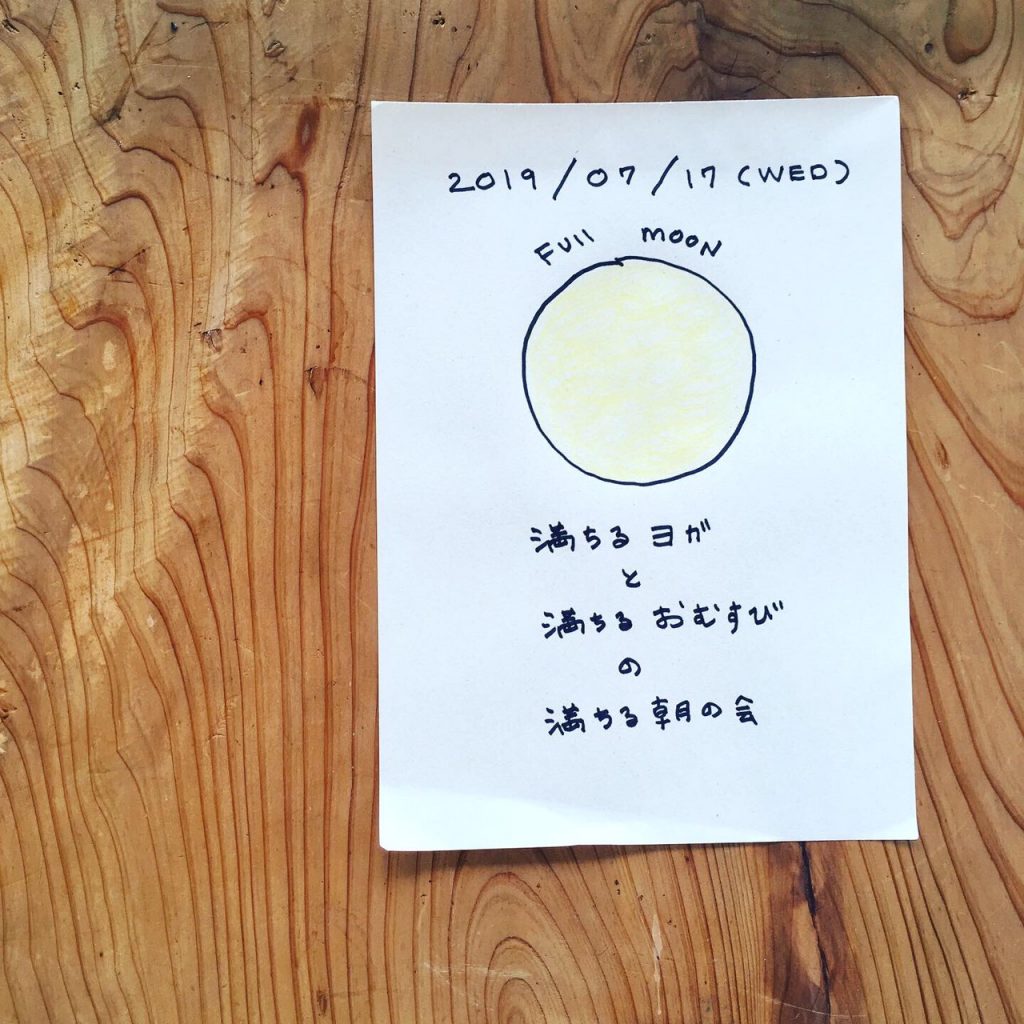 2019/07/17(WED)
Full MOON
満ちる ヨガ
と
満ちる おむすび
の
満ちる朝の会